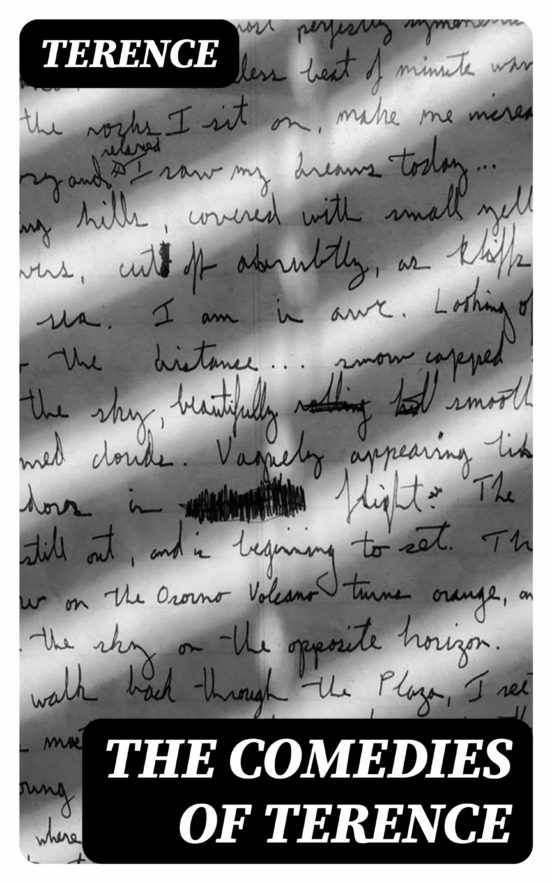 TERENCE
most perfectly symmetrical
less beat of minute wav
the rocks I sit on, make me increa
relaxed
ry and I saw my dreams today...
ng hills, covered with small yell
wers, cut off abrubtly, as kliffs
sea. I am in awe. Looking of
the distance... snow capped
the sky, beautifully smooth
med clouds. Vaguely appearing lik
dows in flight. The
still out, and is beginning to set. Th
w on the Osorno Volcano turns orange, an
the sky on the opposite horizon.
walk back through the Plaza, I see
mo
THE COMEDIES
oung
OF TERENCE
where